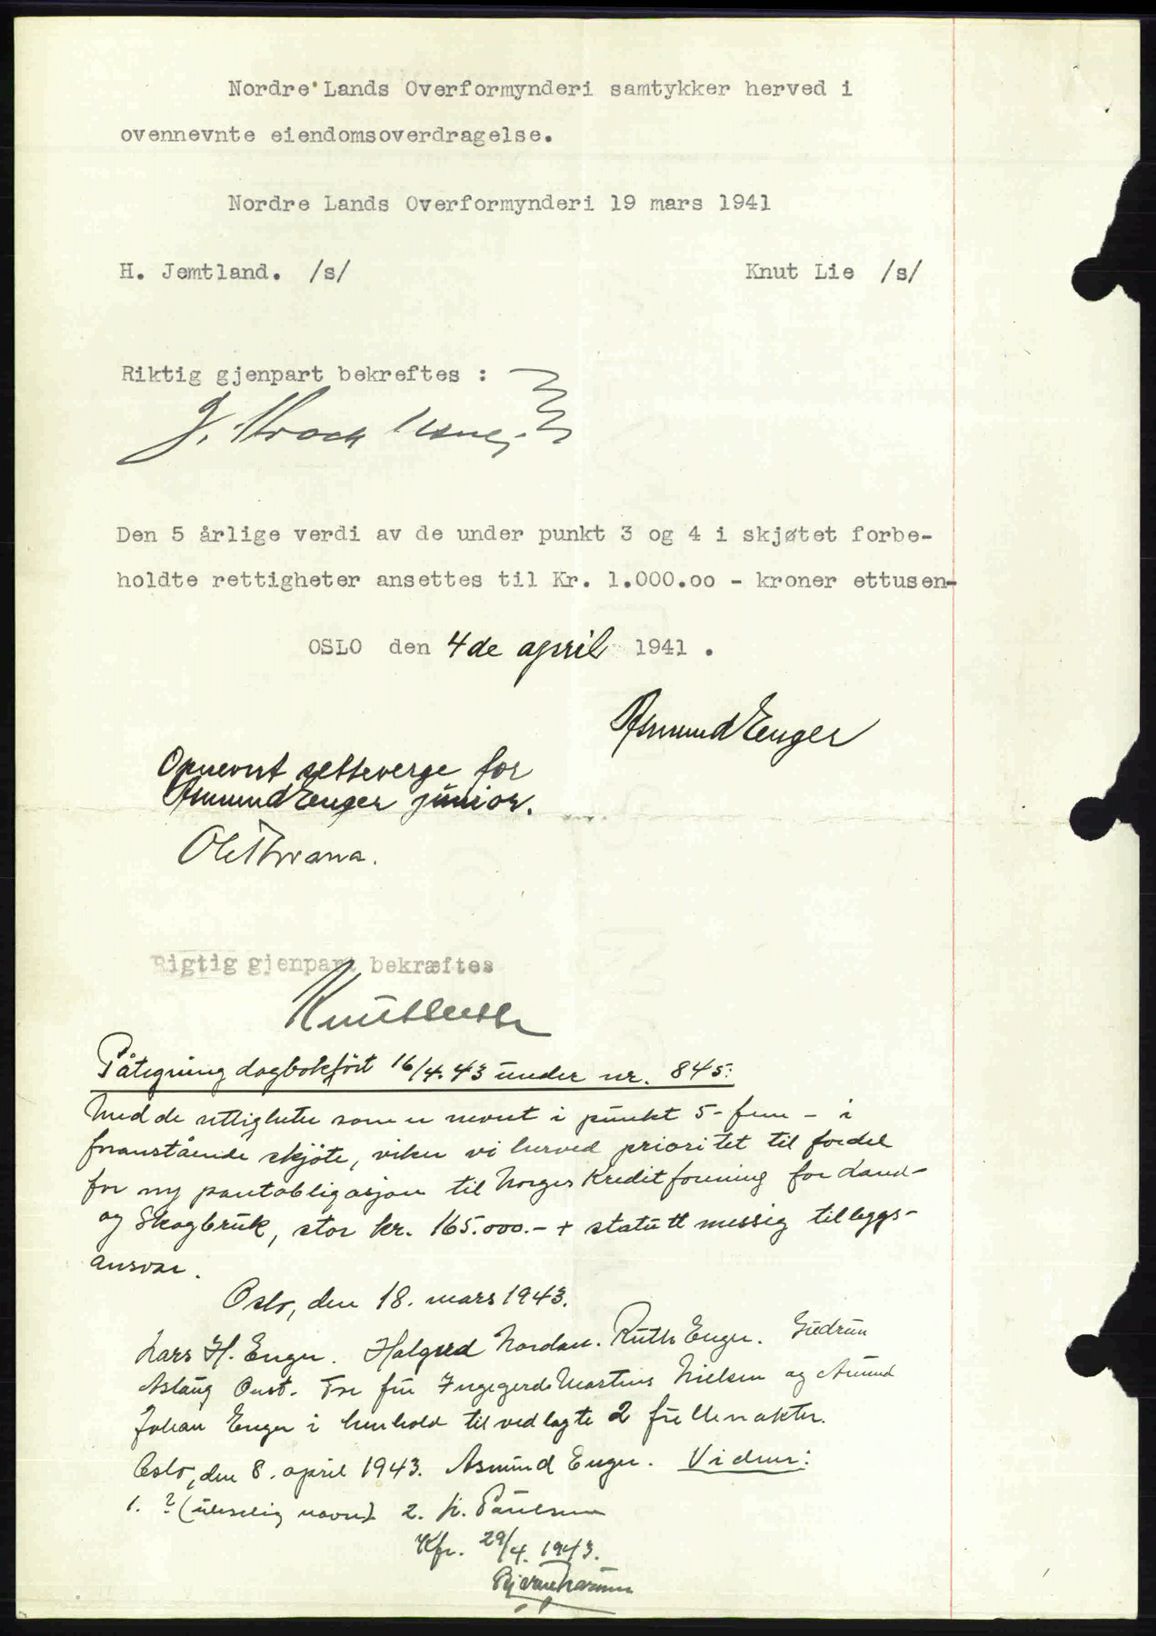 Nordre Lands Overformynderi samtykker herved i
ovennevnte eiendomsoverdragelse.
Nordre Lands Overformynderi 19 mars 1941
H. Jemtland. /s/ Knut Lie /s/
Riktig gjenpart bekreftes :
Den 5 årlige verdi av de under punkt 3 og 4 i skjøtet forbe-
holdte rettigheter ansettes til Kr. 1.000.oo - kroner ettusen-
OSLO den 4de april 1941 .
Asmund Enger
Opnevnt setteverge for
Asmund Enger junior.
Rigtig gjenpart bekræftes
Påtegning dagbokført 16/4.43 under nr. 845:
Med de rettigheter som er nevnt i punkt 5- fem - i
foranstående skjøte, viker vi herved prioritet til fordel
for ny pantobligasjon til Norges Kreditforening for Land-
og Skogbruk, stor kr. 165.000.- + statuttmessig tilleggs-
ansvar.
Oslo, den 18. mars 1943.
Lars H. Enger. Halgerd Nordan. Ruth Enger. Gudrun
Aslaug Onst. For fru Ingegerd Martins Nielsen og Amund
Johan Enger i henhold til vedlagte 2 fullmakter.
Oslo, den 8. april 1943. Asmund Enger. Videre:
1. ? (uleselig navn) 2. K. Paulsen
Kfr. 29/4. 1943.